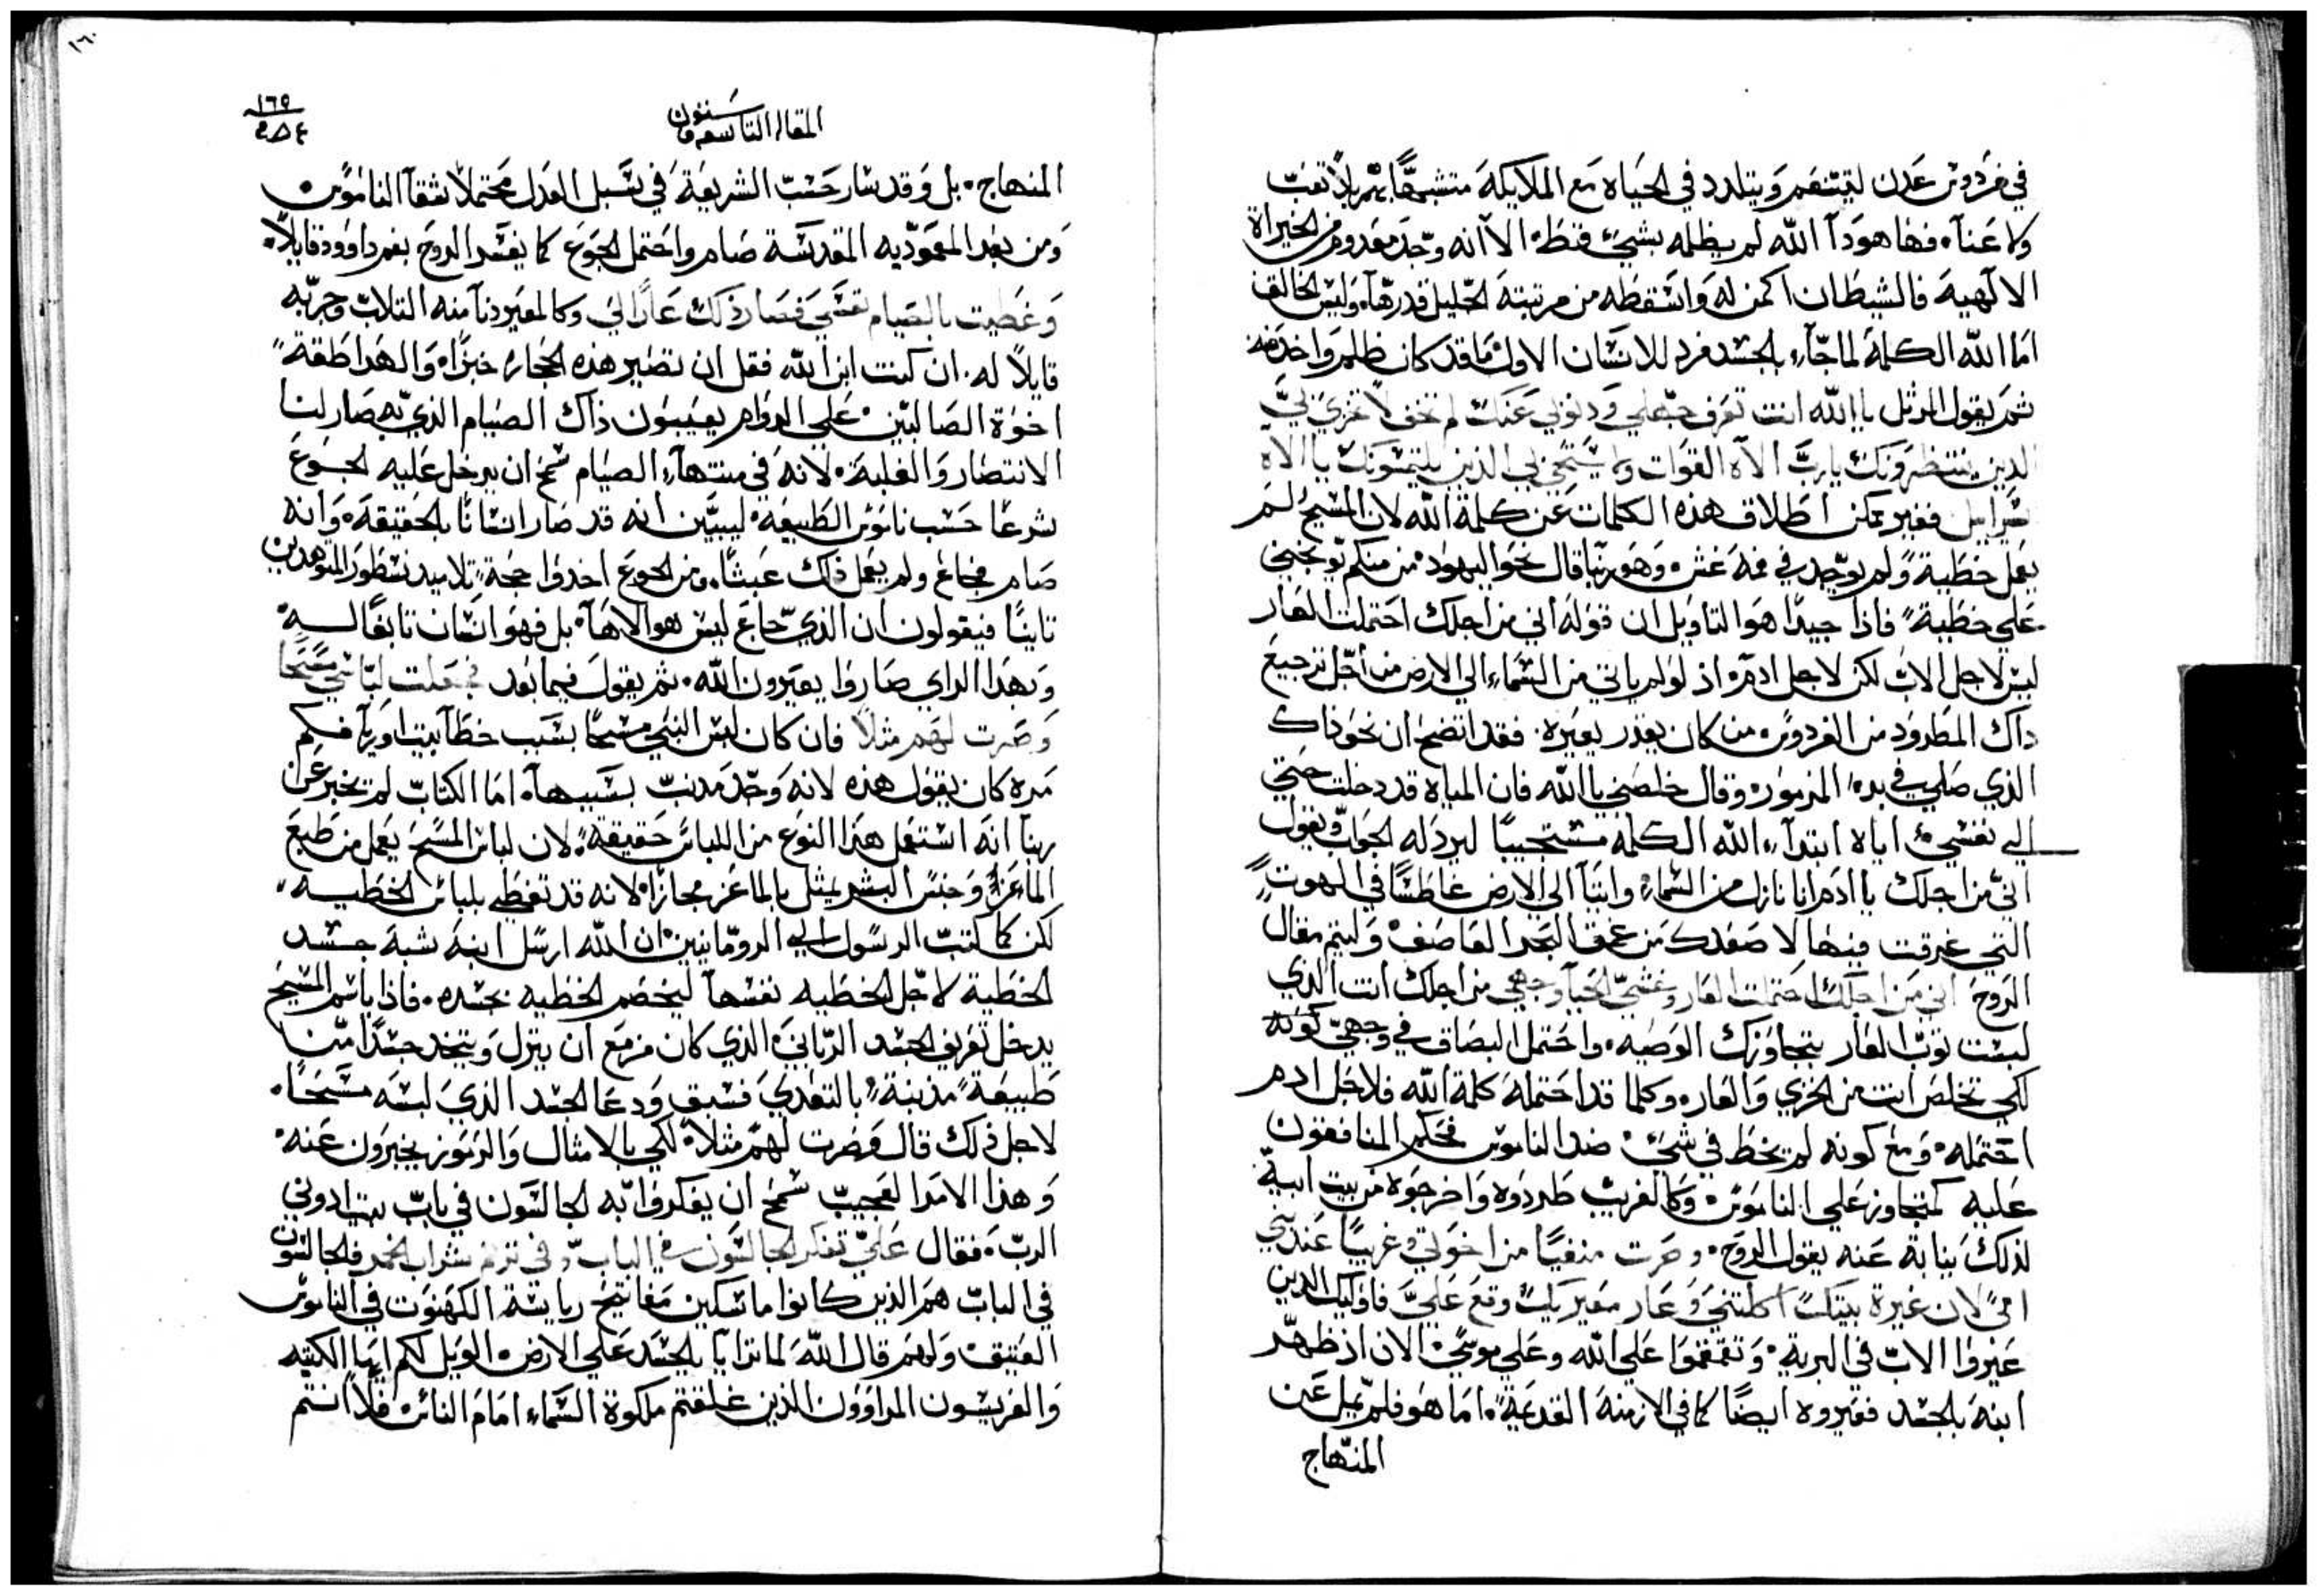 في فردوس عدن ليتنعم ويتلدد في الحياه مع الملايكة متشبهًا بهم بلا تعب
ولا عنآء فها هوذا الله لم يظلمه بشيء قط الا انه وجد معدوم من الخيراة
الالهية فالشيطان اكمن له واسقطه من مرتبته الجليل قدرها وليس الخالق
اما الله الكلمة لما جآء بالجسد فرد للانسان الاول ما قد كان ظلم واخذ منه
ثم يقول المرتل يا الله انت تعرف جهلي وذنوبي عنك لم تخف لا تخزي بي
الدين ينتظرونك يارب الاه القوات ولا يستحي بي الذين يلتمسونك يا الاه
اسراييل فغير ممكن اطلاق هذه الكلمات عن كلمة الله لان المسيح لم
يعمل خطية ولم يوجد في فمه غش وهو ربنا قال نحو اليهود من منكم يوبخني
علي خطية فاذا جيدًا هو التاويل ان قوله اني من اجلك احتملت العار
ليس لاجل الاب لكن لاجل ادم اذ لو لم ياتي من السماء الي الارض من اجل ترجيع
داك المطرود من الفردوس من كان يقدر يعيره فقد اتضح ان نحو ذاك
الذي صلي في بدء المزمور وقال خلصني يا الله فان المياه قد دخلت حتي
الي نفسي اياه ابتدآء الله الكلمه مستجيبًا ليرد له الجواب ويقول
اني من اجلك يا ادم انا نازل من السماء واتيآ الي الارض غاطسًا في الهوت
التي غرقت فيها لاصعدك من عمق البحر العاصف وليتم مقال
الروح اني من اجلك احتملت العار وغشي الحيآ وجهي من اجلك انت الذي
لبست توب العار بتجاوزك الوصيه واحتمل البصاق في وجهي كونه
لكي تخلص انت من الخزي والعار وكلما قد احتمله كلمة الله فلاجل ادم
احتمله ومع كونه لم يخط في شيء ضد الناموس فحكم المنافقون
عليه كمتجاوز علي الناموس وكالغريب طردوه واخرجوه من بيت ابيه
لذلك بنيابة عنه يقول الروح وصرت منفيًا من اخوتي وغريبًا عند بني
امي لان غيرة بيتك اكلتني وعار معيريك وقع عليَّ فاوليك الدين
عيروا الاب في البرية وتقمقموا علي الله وعلي موسي الان اذ ظهر
ابنه بالجسد فعيروه ايضًا كما في الازمنه القديمة اما هو فلم يمل عن
المنهاج
١٦٠
المقاله التاسعه وستون
١٦٥
المنهاج بل وقد سار حسب الشريعة في سبل العدل محتملًا شقآ الناموس
ومن بعد المعموديه المقدسة صام واحتمل الجوع كما يفسد الروح بفم داوود قايلًا
وغطيت بالصيام نفسي فصار ذلك عارًا لي وكالمعير دنآ منه التلاب وجربه
قايلًا له ان كنت ابن الله فقل ان تصير هذه الحجاره خبزًا
اخوة الصالبين علي الدوام يعيبون ذاك الصيام الذي به صار لنا
الانتصار والغلبة لانه في منتهآء الصيام سمح ان يدخل عليه الجوع
شرعًا حسب ناموس الطبيعة ليبين انه قد صار انسانًا بالحقيقة وانه
صام فجاع ولم يعمل ذلك عبثًا ومن الجوع اخدوا حجة تلاميد نسطور
تانيًا فيقولون ان الذي جاع ليس هو الاهآ بل فهو انسان تابعًا له
وبهذا الراي صاروا يعيرون الله ثم يقول فيما بعد فجعلت لباسي مسحًا
وصرت لهم مثلًا فان كان لبس النبي مسحًا بسبب خطآ بيت اوريآ فكم
مرة كان يقول هذه لانه وجد مدنب بسببهآ اما الكتاب لم يخبر عن
ربنآ انه استعمل هذا النوع من اللباس حقيقة لان لباس المسح يعمل من طبع
الماعز وجنس البشر يمثل بالماعز مجازًا لانه قد تغطي بلباس الخطيه
لكن كما كتب الرسول الي الرومانيين ان الله ارسل ابنه شبه جسد
الخطية لاجل الخطيه نفسها ليخصم الخطيه بجسده فاذا باسم المسيح
يدخل تعريف الجسد الرباني الذي كان مزمع ان ينزل ويتخد جسدًا منا
طبيعة مذنبة بالتعدي فسبق ودعا الجسد الذي لبسه مسحًا
لاجل ذلك قال وصرت لهم مثلًا لكي بالامثال والرموز يخبرون عنه
وهذا الامر العجيب سمح ان يفكروا به الجالسون في باب بيت ادوني
الرب فقال عليّ تفكر الجالسون في الباب وفي ترنم شراب الخمر فالجالسون
في الباب هم الذين كانوا ماسكين مفاتيح رياسة الكهنوت في الناموس
العتيق ولهم قال الله لما ترايا بالجسد علي الارض الويل لكم ايها الكتبه
والفريسون المراوون الذين غلقتم ملكوة السماء امام الناس فلا انتم